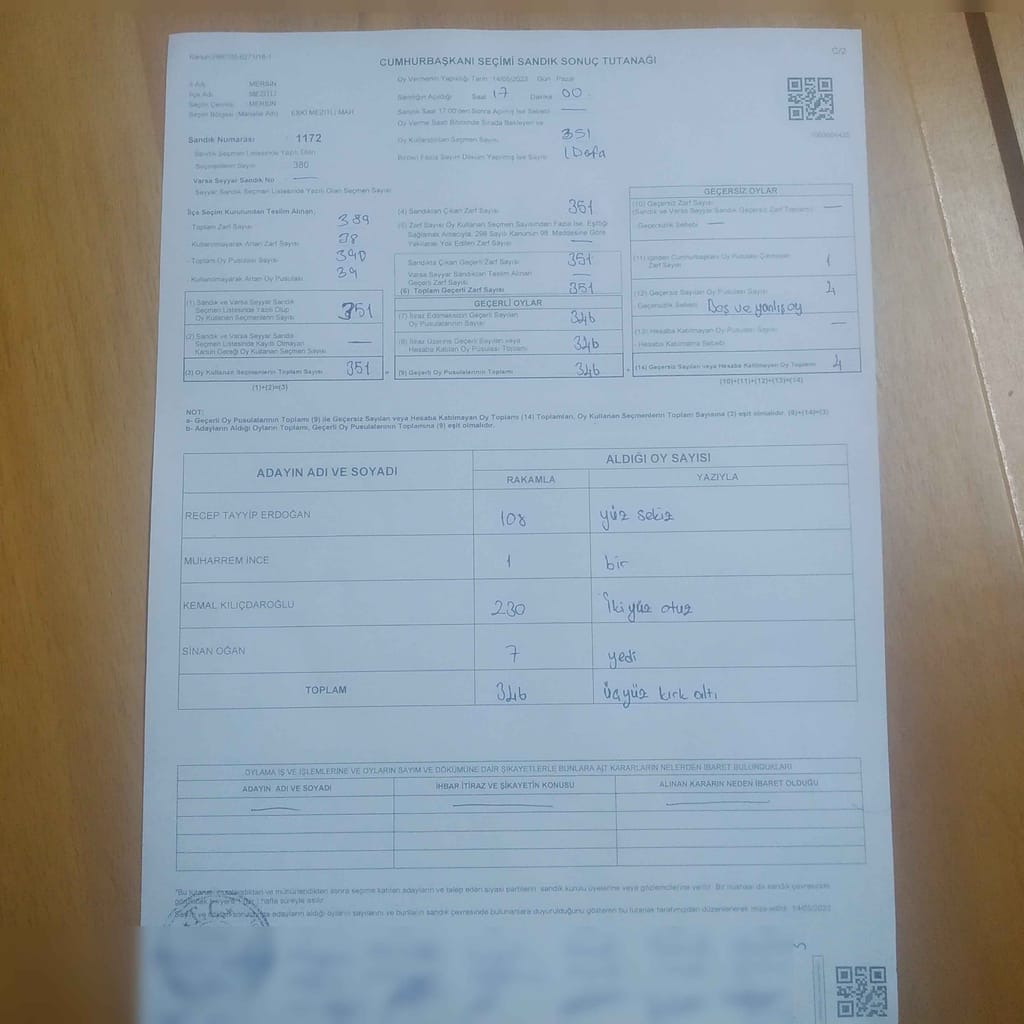 C/2
CUMHURBAŞKANI SEÇİMİ SANDIK SONUÇ TUTANAĞI
İl Adı: MERSİN
İlçe Adı: MEZİTLİ
Seçim Çevresi: MERSİN
Seçim Bölgesi (Mahalle Adı): ESKİ MEZİTLİ MAH.
Sandık Numarası 1172
Sandık Seçmen Listesinde Yazılı Olan
Seçmenlerin Sayısı 380
Varsa Seyyar Sandık No —
Seyyar Sandık Seçmen Listesinde Yazılı Olan Seçmen Sayısı
Oy Vermenin Yapıldığı Tarih: 14/05/2023 Gün: Pazar
Sandığın Açıldığı Saat 17 Dakika 00
Sandık Saat 17.00'den Sonra Açılmış İse Sebebi —
Oy Verme Saati Bitiminde Sırada Bekleyen ve
Oy Kullandırılan Seçmen Sayısı 351
Birden Fazla Sayım Döküm Yapılmış İse Sayısı 1 Defa
İlçe Seçim Kurulundan Teslim Alınan;
Toplam Zarf Sayısı 389
- Kullanılmayarak Artan Zarf Sayısı 38
- Toplam Oy Pusulası Sayısı 390
- Kullanılmayarak Artan Oy Pusulası 39
(1) Sandık ve Varsa Seyyar Sandık
Seçmen Listesinde Yazılı Olup
Oy Kullanan Seçmenlerin Sayısı 351
(2) Sandık ve Varsa Seyyar Sandık
Seçmen Listesinde Kayıtlı Olmayan
Kanun Gereği Oy Kullanan Seçmen Sayısı —
(3) Oy Kullanan Seçmenlerin Toplam Sayısı 351
(1)+(2)=(3)
(4) Sandıktan Çıkan Zarf Sayısı 351
(5) Zarf Sayısı Oy Kullanan Seçmen Sayısından Fazla İse, Eşitliği
Sağlamak Amacıyla, 298 Sayılı Kanunun 98. Maddesine Göre
Yakılarak Yok Edilen Zarf Sayısı —
Sandıkta Çıkan Geçerli Zarf Sayısı 351
Varsa Seyyar Sandıktan Teslim Alınan
Geçerli Zarf Sayısı —
(6) Toplam Geçerli Zarf Sayısı 351
GEÇERLİ OYLAR
(7) İtiraz Edilmeksizin Geçerli Sayılan
Oy Pusulalarının Sayısı 346
(8) İtiraz Üzerine Geçerli Sayılan veya
Hesaba Katılan Oy Pusulası Toplamı 346
(9) Geçerli Oy Pusulalarının Toplamı 346
GEÇERSİZ OYLAR
(10) Geçersiz Zarf Sayısı —
(Sandık ve Varsa Seyyar Sandık Geçersiz Zarf Toplamı)
- Geçersizlik Sebebi —
(11) İçinden Cumhurbaşkanı Oy Pusulası Çıkmayan
Zarf Sayısı 1
(12) Geçersiz Sayılan Oy Pusulası Sayısı
- Geçersizlik Sebebi Boş ve yanlış oy
(13) Hesaba Katılmayan Oy Pusulası Sayısı —
- Hesaba Katılmama Sebebi
(14) Geçersiz Sayılan veya Hesaba Katılmayan Oy Toplamı 4
(10)+(11)+(12)+(13)=(14)
NOT:
a- Geçerli Oy Pusulalarının Toplamı (9) ile Geçersiz Sayılan veya Hesaba Katılmayan Oy Toplamı (14) Toplamları, Oy Kullanan Seçmenlerin Toplam Sayısına (3) eşit olmalıdır. (9)+(14)=(3)
b- Adayların Aldığı Oyların Toplamı, Geçerli Oy Pusulalarının Toplamına (9) eşit olmalıdır.
ADAYIN ADI VE SOYADI ALDIĞI OY SAYISI
RAKAMLA YAZIYLA
RECEP TAYYİP ERDOĞAN 108 yüz sekiz
MUHARREM İNCE 1 bir
KEMAL KILIÇDAROĞLU 230 İki yüz otuz
SİNAN OĞAN 7 yedi
TOPLAM 346 üçyüz kırk altı
OYLAMA İŞ VE İŞLEMLERİNE VE OYLARIN SAYIM VE DÖKÜMÜNE DAİR ŞİKAYETLERLE BUNLARA AİT KARARLARIN NELERDEN İBARET BULUNDUKLARI
ADAYIN ADI VE SOYADI İHBAR İTİRAZ VE ŞİKAYETİN KONUSU ALINAN KARARIN NEDEN İBARET OLDUĞU
— — —
"Bu tutanak imzalandıktan ve mühürlendikten sonra seçime katılan adayların ve talep eden siyasi partilerin sandık kurulu üyelerine veya gözlemcilerine verilir. Bir nüshası da sandık çevresinde
hafta süreyle asılır.
Sayım ve döküm sonucunda adayların aldığı oyların sayılarını ve bunların sandık çevresinde bulunanlara duyurulduğunu gösteren bu tutanak tarafımızdan düzenlenerek imza edildi. 14/05/2023